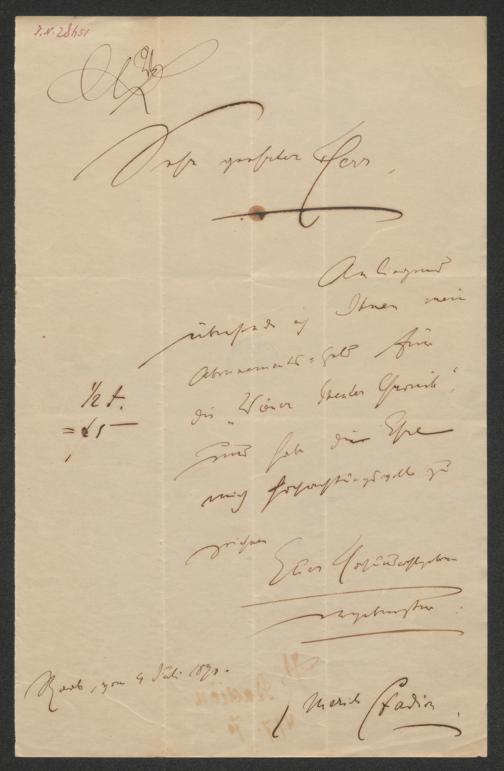 I.N. 28451
Sehr geehrter Herr
Anliegend
übersende ich Ihnen mein
Abonnements=Geld für
die „Wiener Theater Chronik",
und habe die Ehre
mich hochachtungsvoll zu
zeichnen
Euer Hochwohlgeboren
ergebenster
½ f.
Raab, vom 4 Juli 1870.
Moritz Stadion